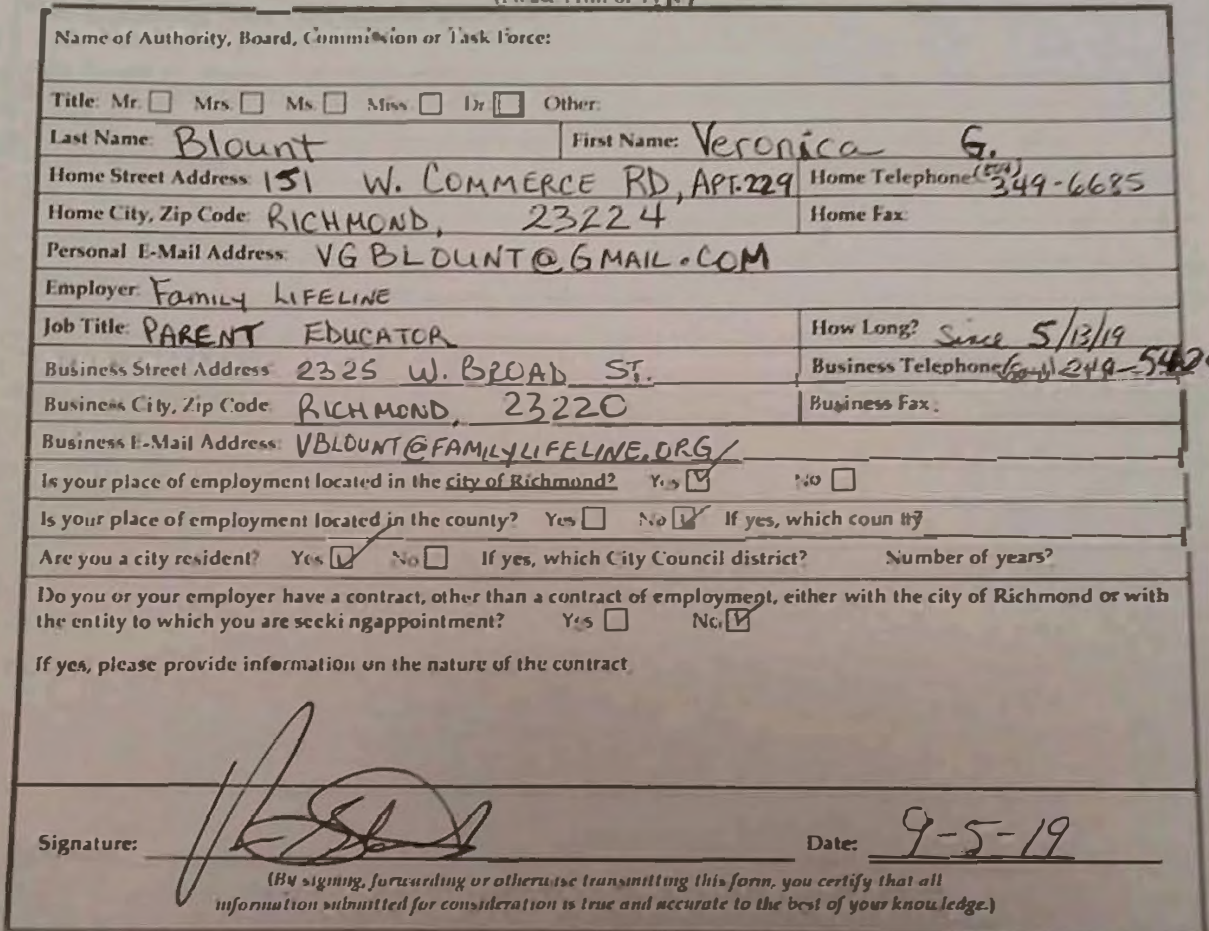 Name of Authority, Board, Commission or Task Force:
Title: Mr. Mrs. Ms. Miss Dr. Other:
Last Name: Blount First Name: Veronica G.
Home Street Address: 151 W. COMMERCE RD, APT. 229 Home Telephone (804) 349-6685
Home City, Zip Code: RICHMOND, 23224 Home Fax:
Personal E-Mail Address: VGBLOUNT@GMAIL.COM
Employer: Family LIFELINE
Job Title: PARENT EDUCATOR How Long? Since 5/13/19
Business Street Address 2325 W. BROAD ST. Business Telephone
Business City, Zip Code RICHMOND, 23220 Business Fax:
Business E-Mail Address: VBLOUNT@FAMILYLIFELINE.ORG/
Is your place of employment located in the city of Richmond? Yes No
Is your place of employment located in the county? Yes No If yes, which county?
Are you a city resident? Yes No If yes, which City Council district? Number of years?
Do you or your employer have a contract, other than a contract of employment, either with the city of Richmond or with
the entity to which you are seeking appointment? Yes No
If yes, please provide information on the nature of the contract
Signature: Date: 9-5-19
(By signing, forwarding or otherwise transmitting this form, you certify that all
information submitted for consideration is true and accurate to the best of your knowledge.)